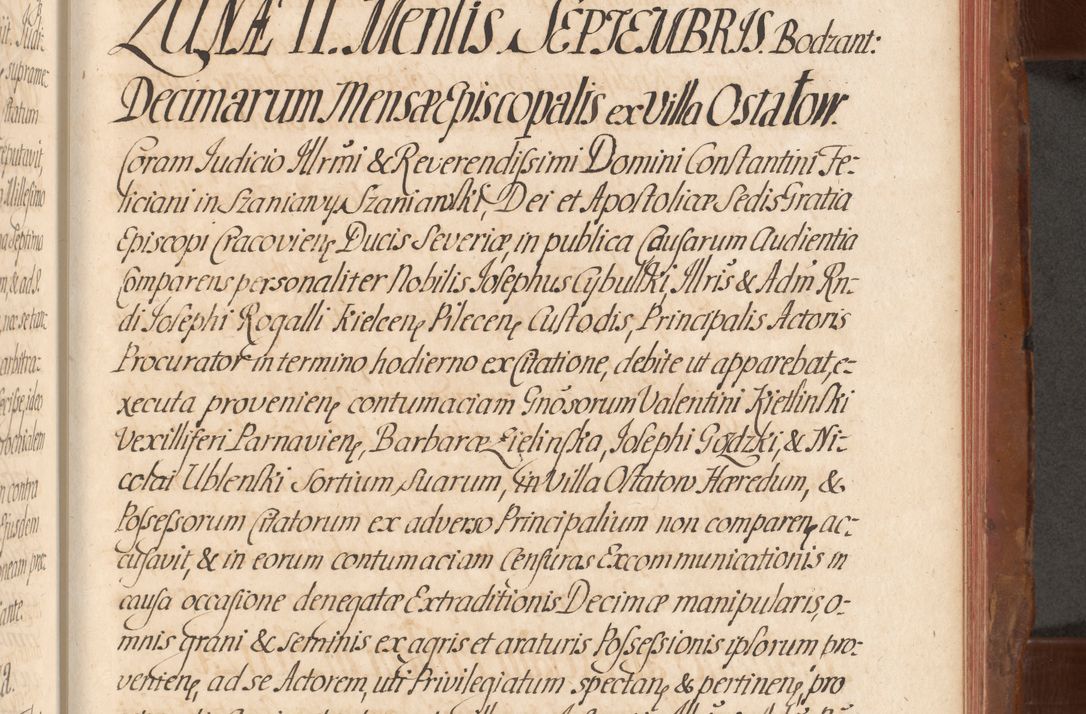 LUNÆ II. Mensis SEPTEMBRIS. Bodzant:
Decimarum Mensæ Episcopalis ex Villa Ostatow.
Coram Judicio Illrmi & Reverendissimi Domini Constantini Fe-
liciani in Szaniawy Szaniawski, Dei et Apostolicæ Sedis Gratia
Episcopi Cracovienę Ducis Severiæ, in publica Causarum Audientia
Comparens personaliter Nobilis Josephus Cybulski, Illris & Adm Rn-
di Josephi Rogalli Kielcenę Pilecenę Custodis, Principalis Actoris
Procurator in termino hodierno ex Citatione, debite ut apparebat, e-
xecuta provenienę contumaciam Gnosorum Valentini Kietlinski
Vexilliferi Parnavienę, Barbaræ Zielinska, Josephi Godzki, & Ni-
colai Ublenski Sortium suarum, in Villa Ostatow Hæredum, &
Possessorum Citatorum ex adverso Principalium non comparenę ac-
cusavit, & in eorum contumaciam Censuras Excommunicationis in
causa occasione denegatæ Extraditionis Decimæ manipularis, o-
mnis grani & seminis ex agris et araturis Possessionis ipsorum pro-
venienę, ad se Actorem, uti Privilegiatum spectanę & pertinenę, pro